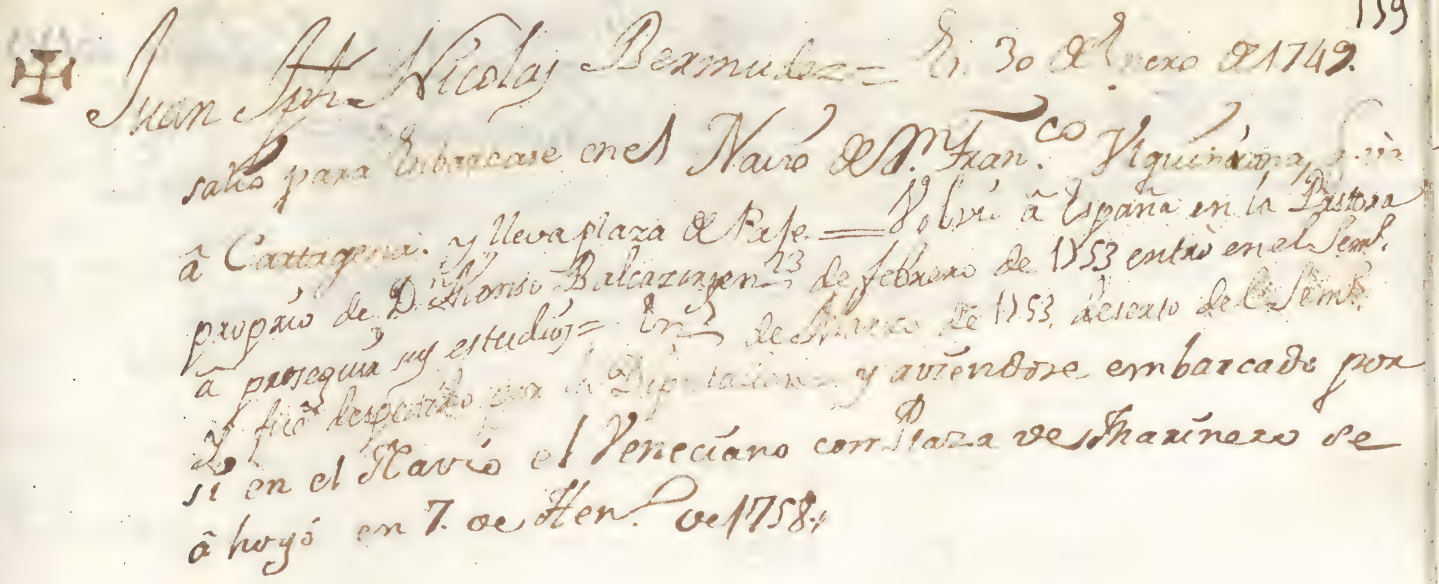 159
Juan Ant. Nicolas Bermudez = En 30 de Enero de 1749.
salio para Enbarcase en el Navio de D.n Fran.co
â Cartagena. y lleva plaza de Paje. = Volvió â España en la Pastora
proprio de D.n Alonso Balcazar, y en 23 de febrero de 1753 entrò en el Sem.o
â proseguir sus estudios = En de Marzo de 1753. deserto de el Sem.o
y fue despedido por la Diputacion = y aviendose embarcado por
si en el Navio el Veneciano com Plaza de Marinero se
â hogó en 7. de Hen.o de 1758.